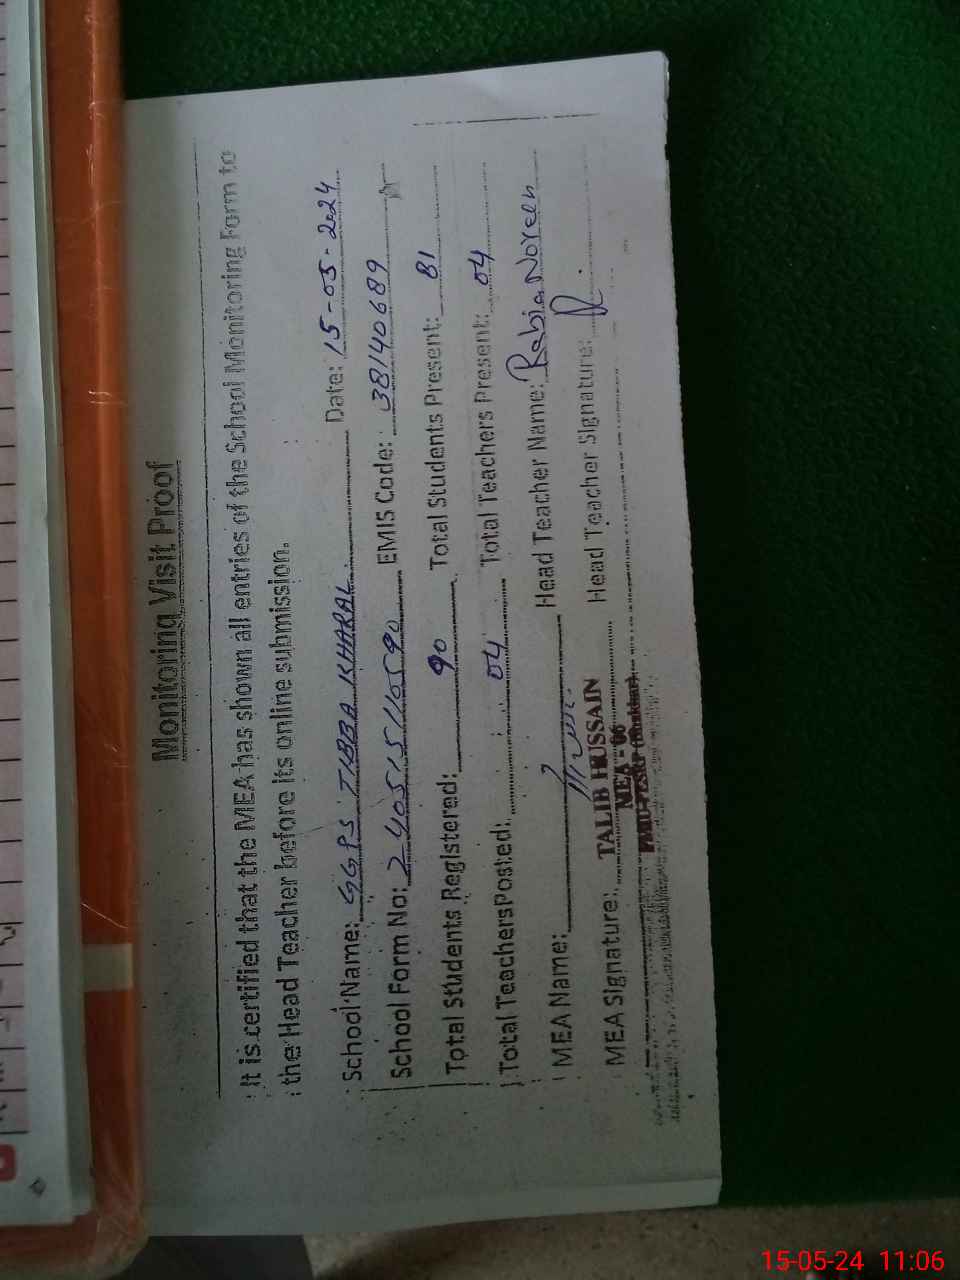 Monitoring Visit Proof
It is certified that the MEA has shown all entries of the School Monitoring Form to
the Head Teacher before its online submission.
School Name: GGPS TIBBA KHARAL Date: 15-05-2024
School Form No: 2405151110590 EMIS Code: 38140689
Total Students Registered: 90 Total Students Present: 81
Total Teachers Posted: 04 Total Teachers Present: 04
MEA Name: Head Teacher Name: Rabia Noreen
MEA Signature: Head Teacher Signature:
TALIB HUSSAIN
MEA - 06
15-05-24 11:06